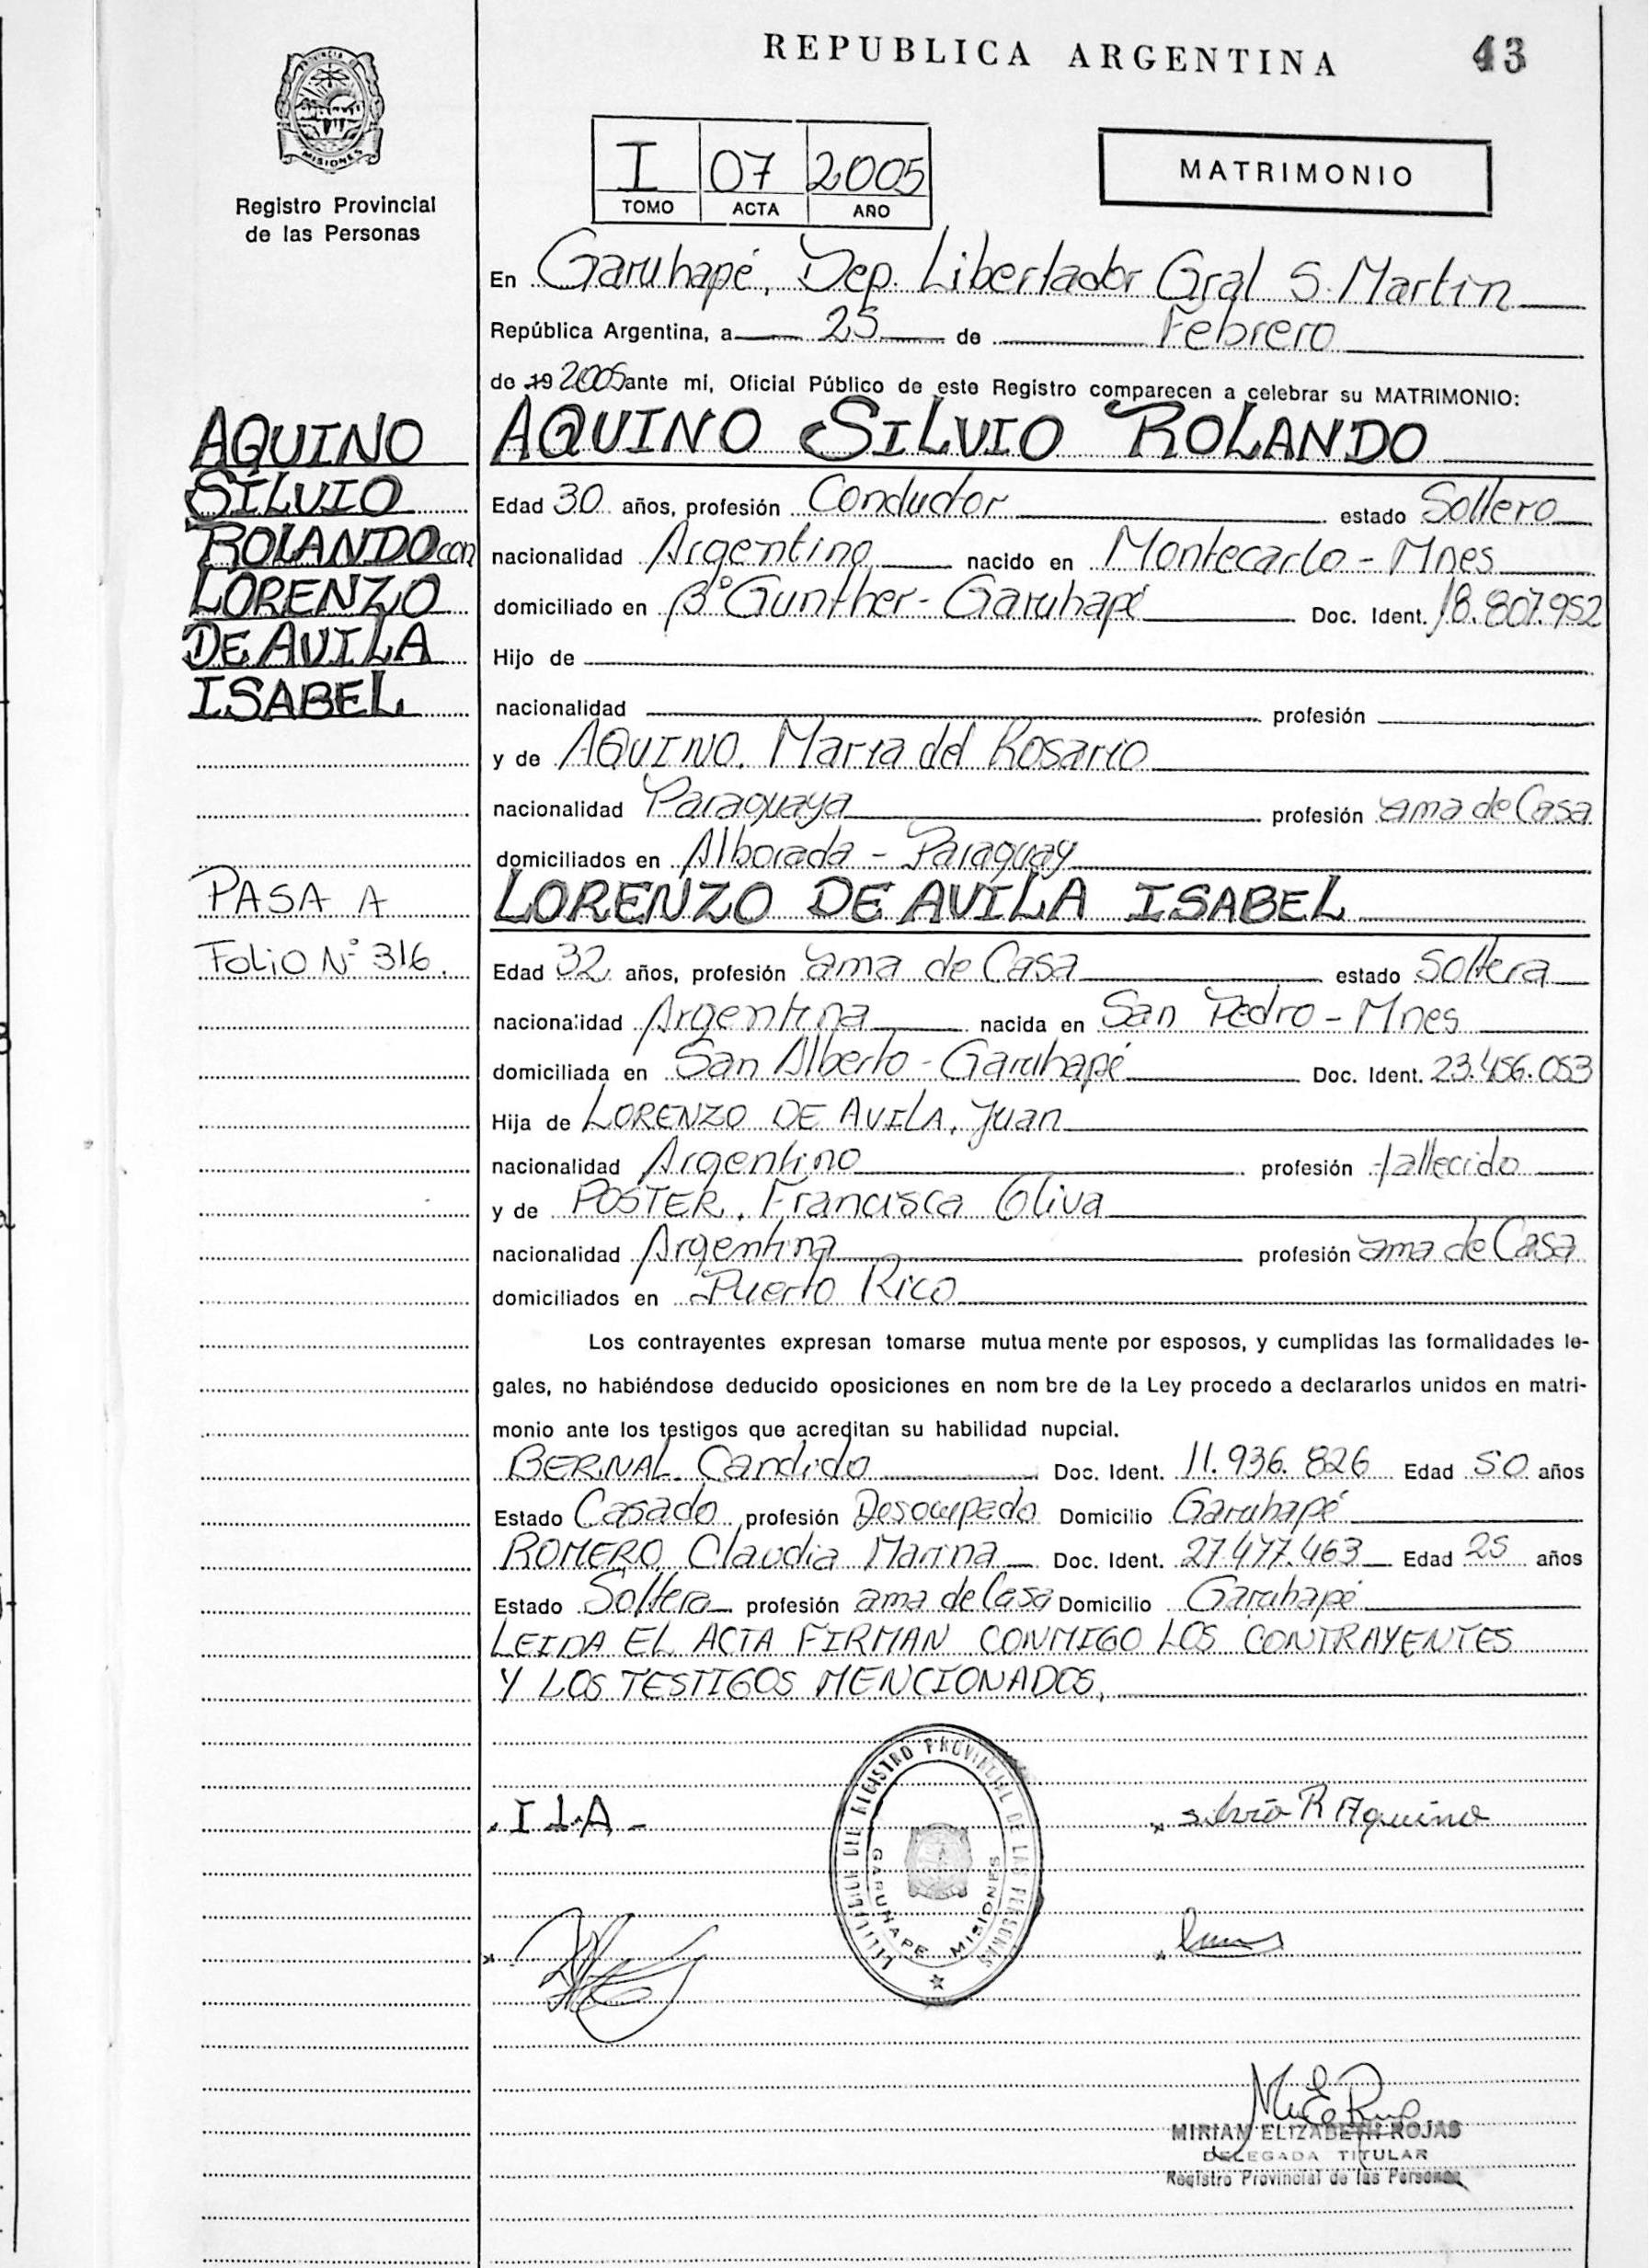 REPUBLICA ARGENTINA
43
PROVINCIA DE
MISIONES
Registro Provincial
de las Personas
I 07 2005
TOMO ACTA AÑO
MATRIMONIO
En Garuhapé, Dep. Libertador Gral S. Martin
República Argentina, a 25 de Febrero
de 19 2005 ante mi, Oficial Público de este Registro comparecen a celebrar su MATRIMONIO:
AQUINO
SILVIO
ROLANDO con
LORENZO
DE AVILA
ISABEL
PASA A
FOLIO Nº 316.
AQUINO SILVIO ROLANDO
Edad 30 años, profesión Conductor estado Soltero
nacionalidad Argentino nacido en Montecarlo - Mnes
domiciliado en Bº Gunther - Garuhapé Doc. Ident. 18.807.952
Hijo de
nacionalidad profesión
y de AQUINO, Maria del Rosario
nacionalidad Paraguaya profesión ama de Casa
domiciliados en Alborada - Paraguay
LORENZO DE AVILA ISABEL
Edad 32 años, profesión ama de Casa estado Soltera
nacionalidad Argentina nacida en San Pedro - Mnes
domiciliada en San Alberto - Garuhapé Doc. Ident. 23.456.053
Hija de LORENZO DE AVILA, Juan
nacionalidad Argentino profesión fallecido
y de POSTER, Francisca Oliva
nacionalidad Argentina profesión ama de Casa
domiciliados en Puerto Rico
Los contrayentes expresan tomarse mutua mente por esposos, y cumplidas las formalidades le-
gales, no habiéndose deducido oposiciones en nom bre de la Ley procedo a declararlos unidos en matri-
monio ante los testigos que acreditan su habilidad nupcial.
BERNAL Candido Doc. Ident. 11.936.826 Edad 50 años
Estado Casado profesión Desocupado Domicilio Garuhapé
ROMERO Claudia Marina Doc. Ident. 27.477.463 Edad 25 años
Estado Soltera profesión ama de Casa Domicilio Garuhapé
LEIDA EL ACTA FIRMAN CONMIGO LOS CONTRAYENTES
Y LOS TESTIGOS MENCIONADOS.
REGISTRO PROVINCIAL DE LAS PERSONAS
GARUHAPE MISIONES
I L A
silvio R Aquino
MIRIAM ELIZABETH ROJAS
DELEGADA TITULAR
Registro Provincial de las Personas